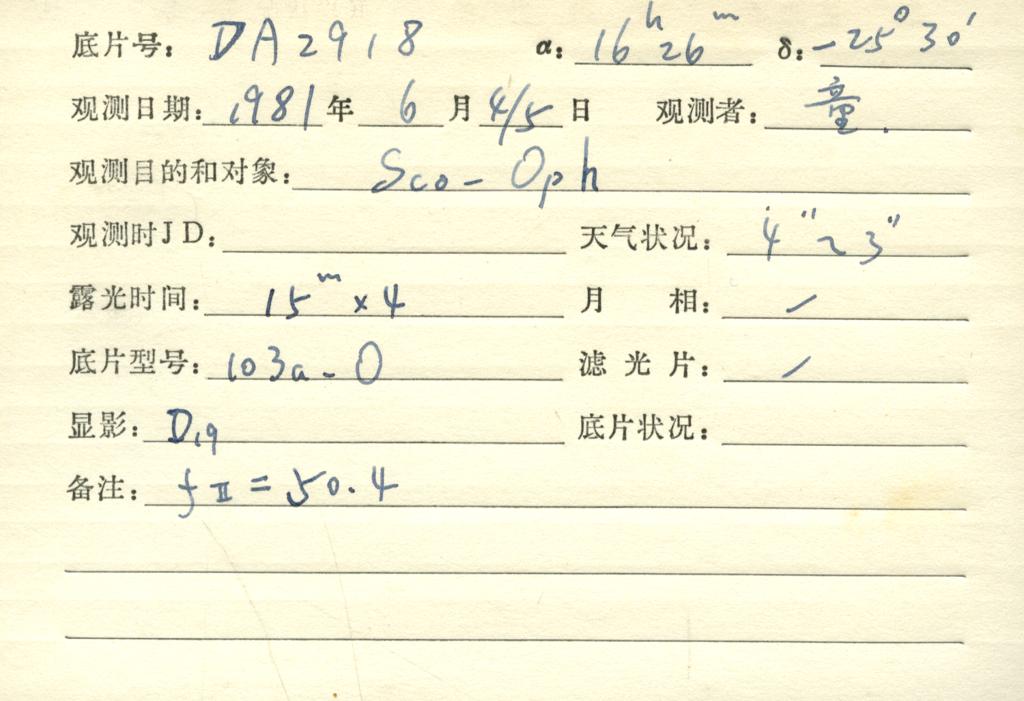 底片号: DA2918 α: 16h 26m δ: -25° 30′
观测日期: 1981 年 6 月 4/5 日 观测者: 童.
观测目的和对象: Sco - Oph
观测时JD: 天气状况: 4" ~ 3"
露光时间: 15m × 4 月 相: /
底片型号: 103a-O 滤光片: /
显影: D19 底片状况:
备注: fⅡ = 50.4